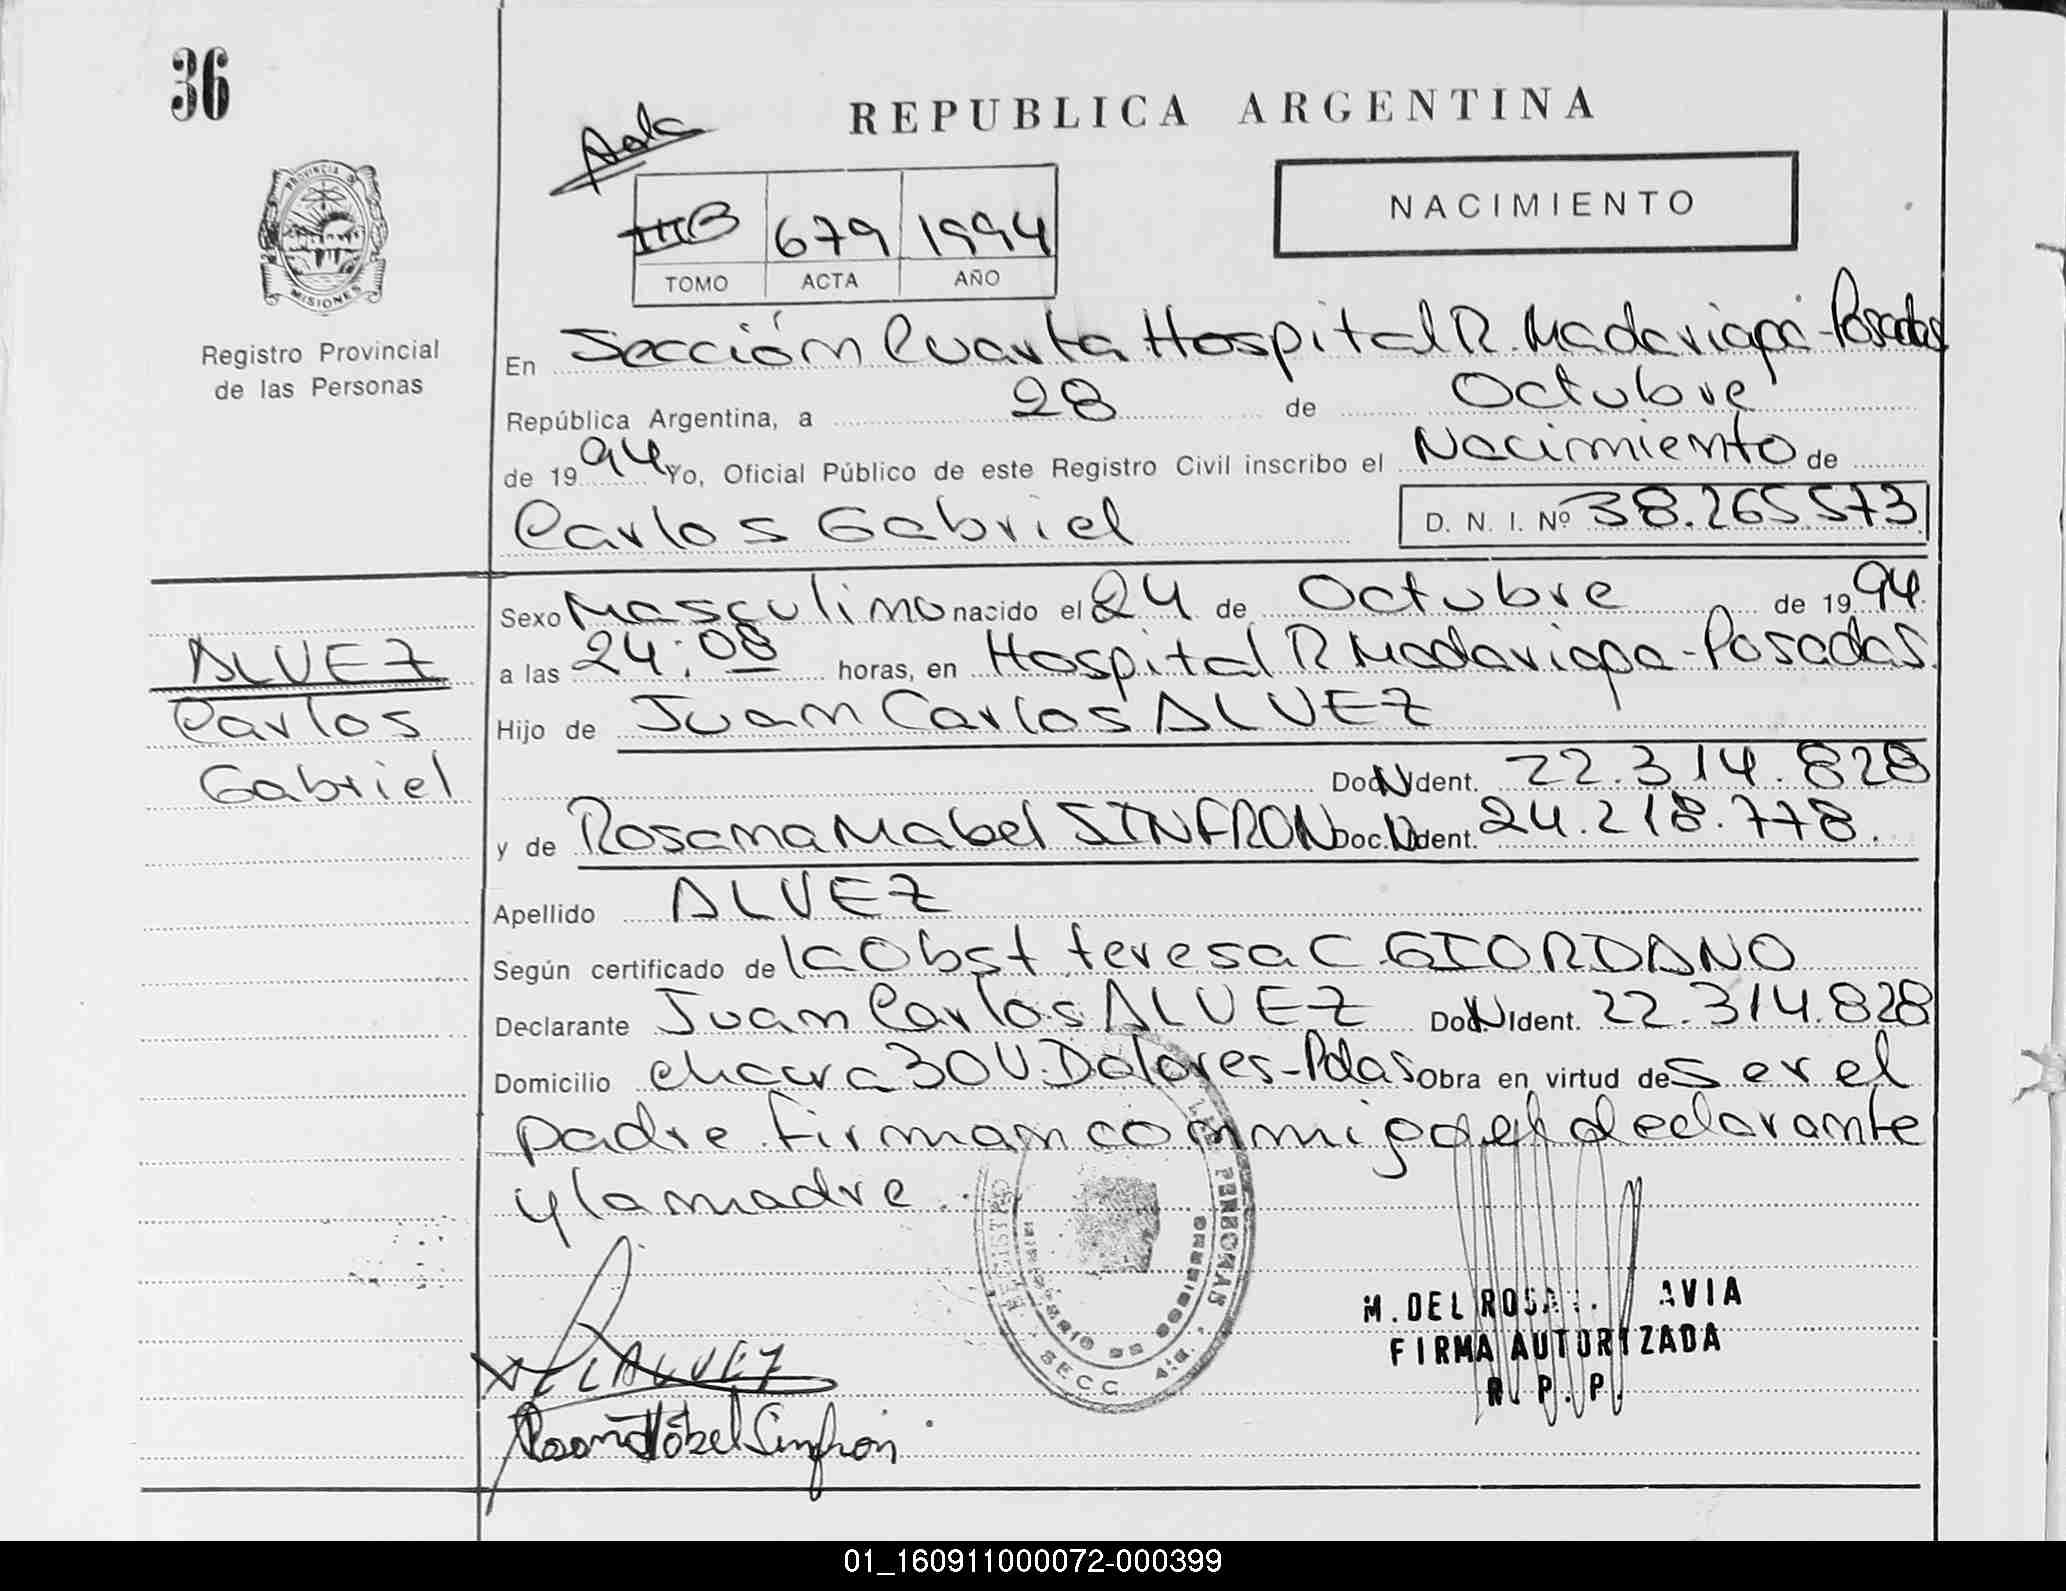 36
REPUBLICA ARGENTINA
PROVINCIA D
MISIONES
Registro Provincial
de las Personas
IIIB 679 1994
TOMO ACTA AÑO
NACIMIENTO
En Sección Cuarta Hospital R. Madariaga - Posadas
República Argentina, a 28 de Octubre
de 1994 Yo, Oficial Público de este Registro Civil inscribo el Nacimiento de
Carlos Gabriel D. N. I. Nº 38.265.573
ALVEZ
Carlos
Gabriel
Sexo Masculino nacido el 24 de Octubre de 1994.
a las 24:08 horas, en Hospital R Madariaga - Posadas.
Hijo de Juan Carlos ALVEZ
Doc. N Ident. 22.314.828
y de Rosana Mabel SINFRON Doc. N Ident. 24.218.778.
Apellido ALVEZ
Según certificado de la Obst teresa C. GIORDANO
Declarante Juan Carlos ALVEZ Doc N Ident. 22.314.828
Domicilio chacra 30 V. Dolores - Pdas Obra en virtud de ser el
padre. firman conmigo el declarante
y la madre.
REGISTRO PERSONAS
SECC. 4ta.
M. DEL AVIA
FIRMA AUTORIZADA
R. P. P.
ALVEZ
Rosana Mabel Sinfron
01_160911000072-000399